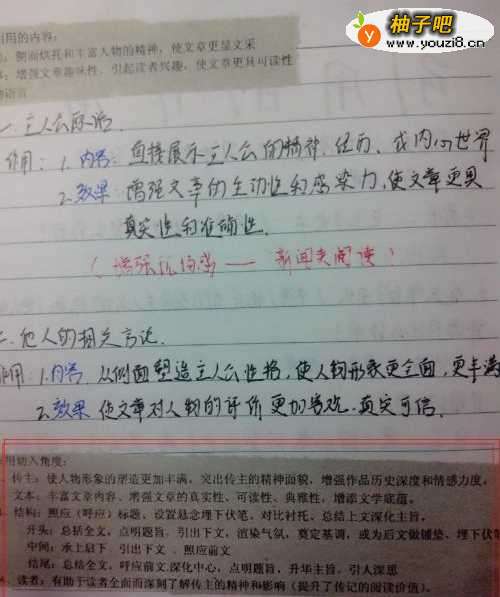 柚子吧
www.youzi8.cn
引用的内容:
侧面烘托和丰富人物的精神,使文章更显文采
增强文章趣味性,引起读者兴趣,使文章更具可读性
一.主人公原话.
作用: 1.内容: 直接展示主人公的精神、经历、或内心世界
2.效果: 增强文章的生动性和感染力,使文章更具
真实性和准确性.
新闻类阅读
二.他人的相关言论.
作用: 1.内容. 从侧面塑造主人公性格,使人物形象更全面,更丰满
2.效果 使文章对人物的评价更加客观.真实可信.
用切入角度:
传主:使人物形象的塑造更加丰满,突出传主的精神面貌,增强作品历史深度和情感力度。
文本:丰富文章内容、增强文章的真实性、可读性、典雅性,增添文学底蕴。
结构:照应(呼应)标题、设置悬念埋下伏笔、对比衬托、总结上文深化主旨。
开头:总括全文,点明题旨,引出下文,渲染气氛,奠定基调,或为后文做铺垫、埋下伏笔
中间:承上启下 引出下文 照应前文
结尾:总结全文,呼应前文,深化中心,点明题旨,升华主旨,引人深思
读者:有助于读者全面而深刻了解传主的精神和影响(提升了传记的阅读价值)。